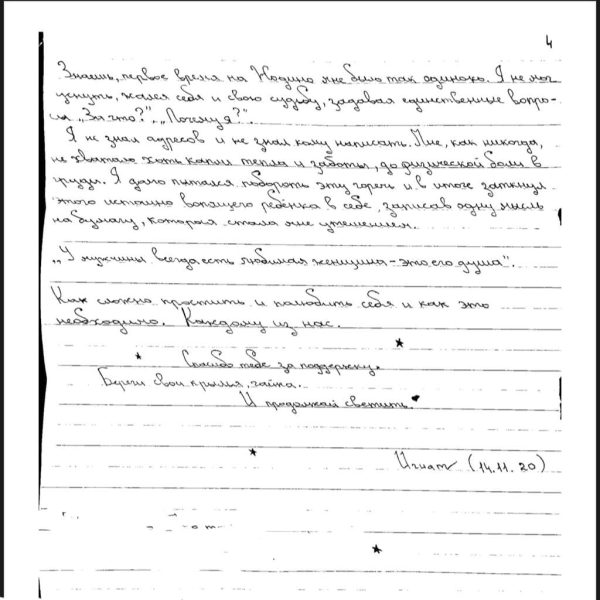 4
Знаешь, первое время на Жодино мне было так одиноко. Я не мог
уснуть, жалел себя и свою судьбу, задавая единственные вопро-
сы „За что?", „Почему я?".
Я не знал адресов и не знал кому написать. Мне, как никогда,
не хватало хоть капли тепла и заботы, до физической боли в
груди. Я долго пытался побороть эту горечь и в итоге заткнул
этого истошно вопящего ребёнка в себе, записав одну мысль
на бумагу, которая стала мне утешением.
„У мужчины всегда есть любимая женщина - это его душа".
Как сложно простить и полюбить себя и как это
необходимо. Каждому из нас.
Спасибо тебе за поддержку.
Береги свои крылья, чайка.
И продолжай светить.
Игнат (14.11.20)